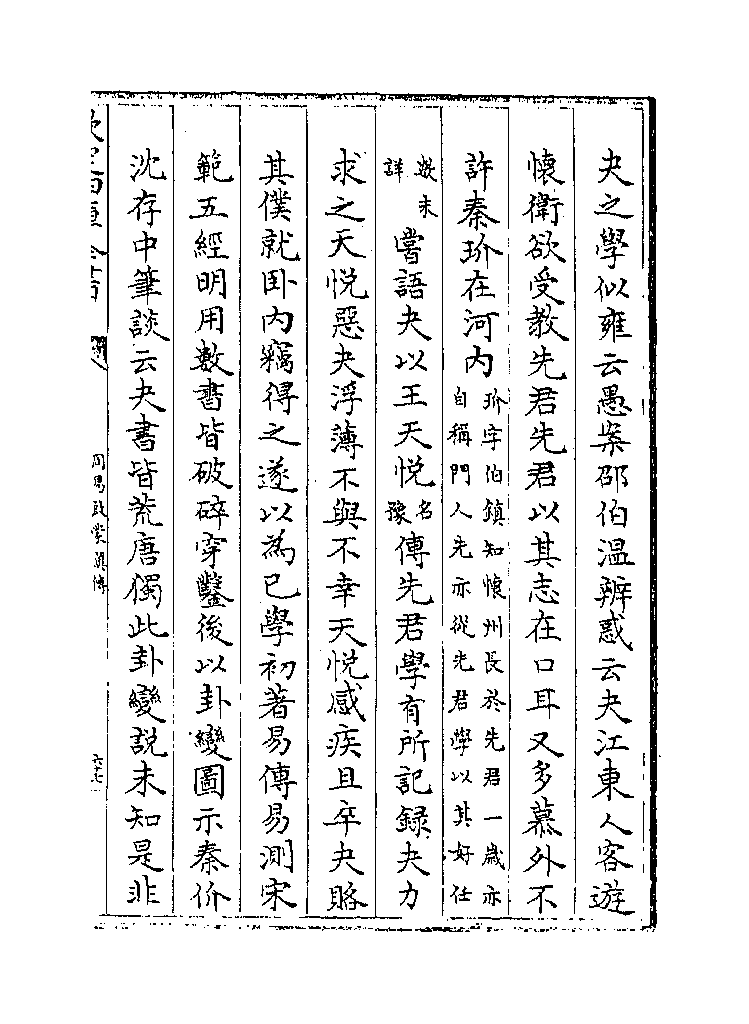 夬之學似雍云愚案邵伯溫辨惑云夬江東人客遊
懷衛欲受教先君先君以其志在口耳又多慕外不
許秦玠在河內
玠字伯鎮知懷州長於先君一歲亦
自稱門人先亦從先君學以其好任
數未
詳
嘗語夬以王天悅
名
豫
傳先君學有所記録夬力
求之天悅惡夬浮薄不與不幸天悅感疾且卒夬賂
其僕就卧内竊得之遂以為已學初著易傳易測宋
範五經明用數書皆破碎穿鑿後以卦變圖示秦价
沈存中筆談云夬書皆荒唐獨此卦變說未知是非
欽定四庫全書
周易啟蒙翼傳